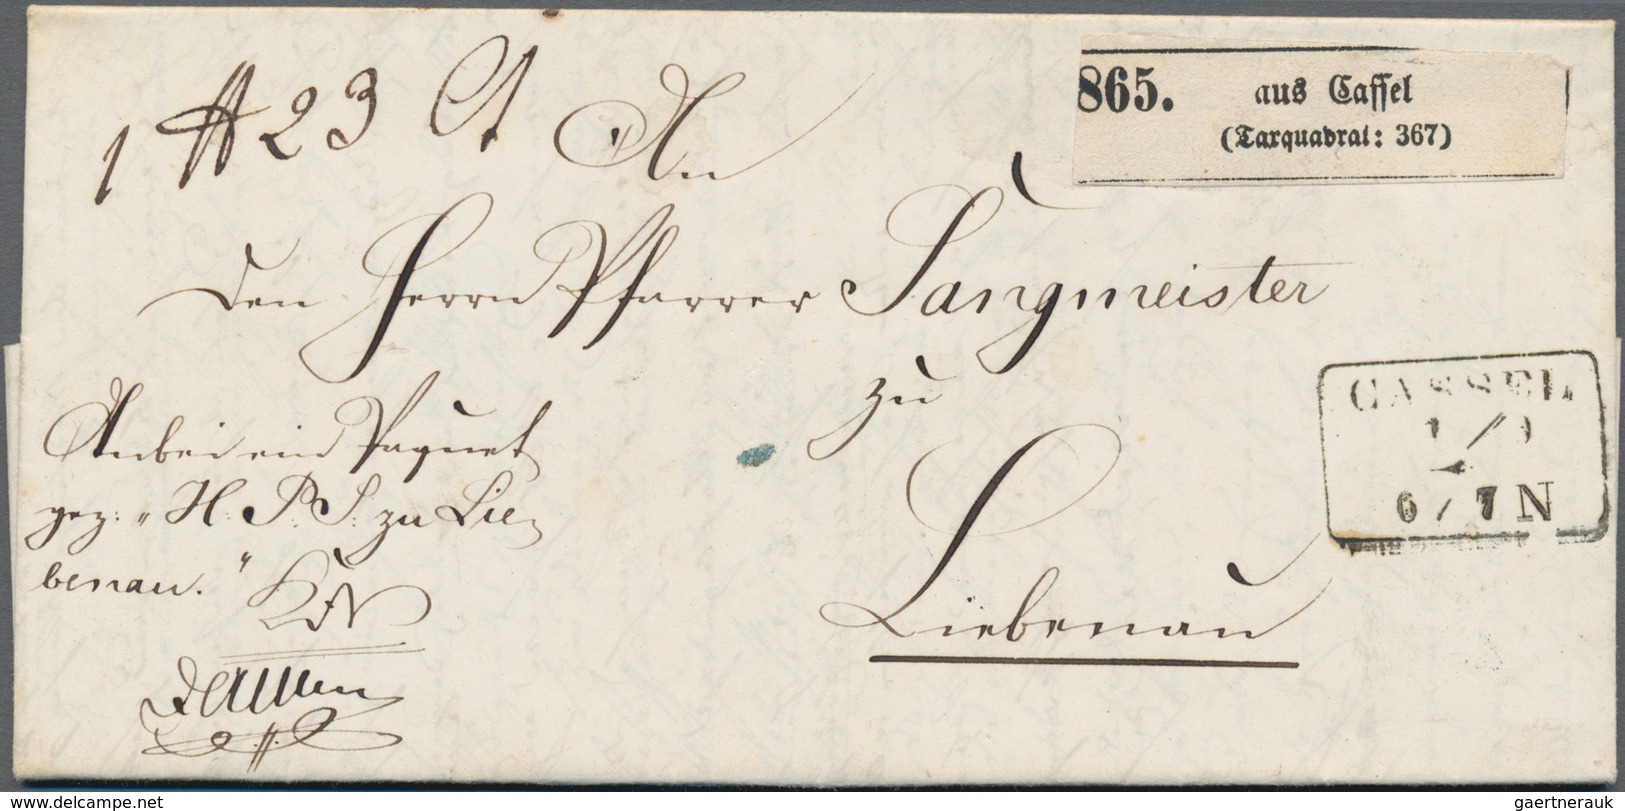 1 ℔ 23 Lt
An
865. aus Cassel
(Taxquadrat: 367)
den Herrn Pfarrer Sangmeister
zu
Liebenau
Anbei ein Paquet
gez. „H. P. S. zu Lie-
benau."
CASSEL
1 / 9
6 / 7 N
www.delcampe.net
gaertnerauk